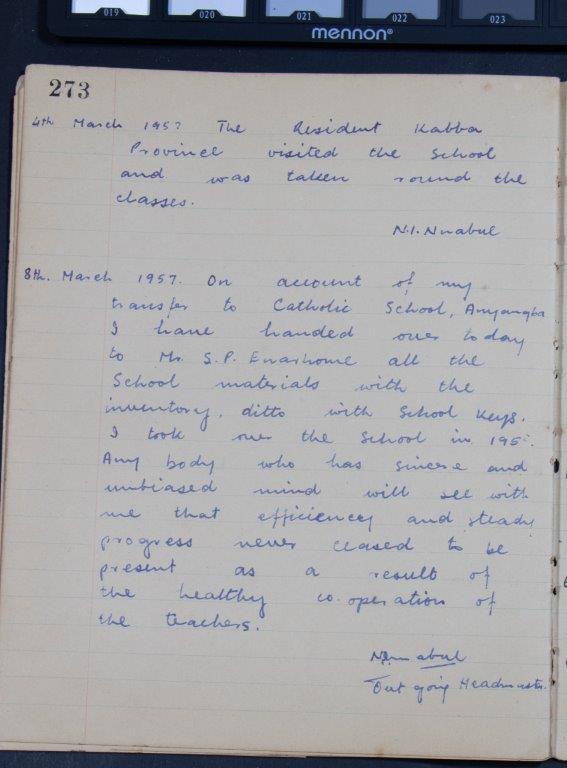 019 020 021 022 023
mennon®
273
4th March 1957 The Resident Kabba
Province visited the School
and was taken round the
classes.
N.I. Nwabul
8th. March 1957. On account of my
transfer to Catholic School, Anyangba
I have handed over today
to Mr. S.P. Enashome all the
School materials with the
inventory, ditto with School keys.
I took over the School in 195
Any body who has sincere and
unbiased mind will see with
me that efficiency and steady
progress never ceased to be
present as a result of
the healthy co-operation of
the teachers.
Out going Headmaster.